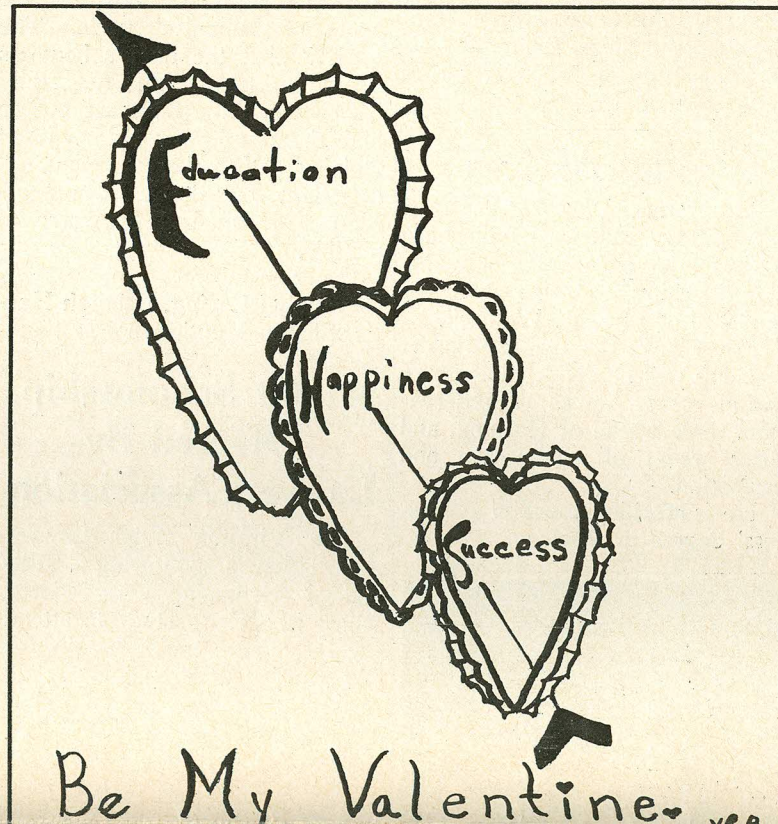 Education
Happiness
Success
Be My Valentine